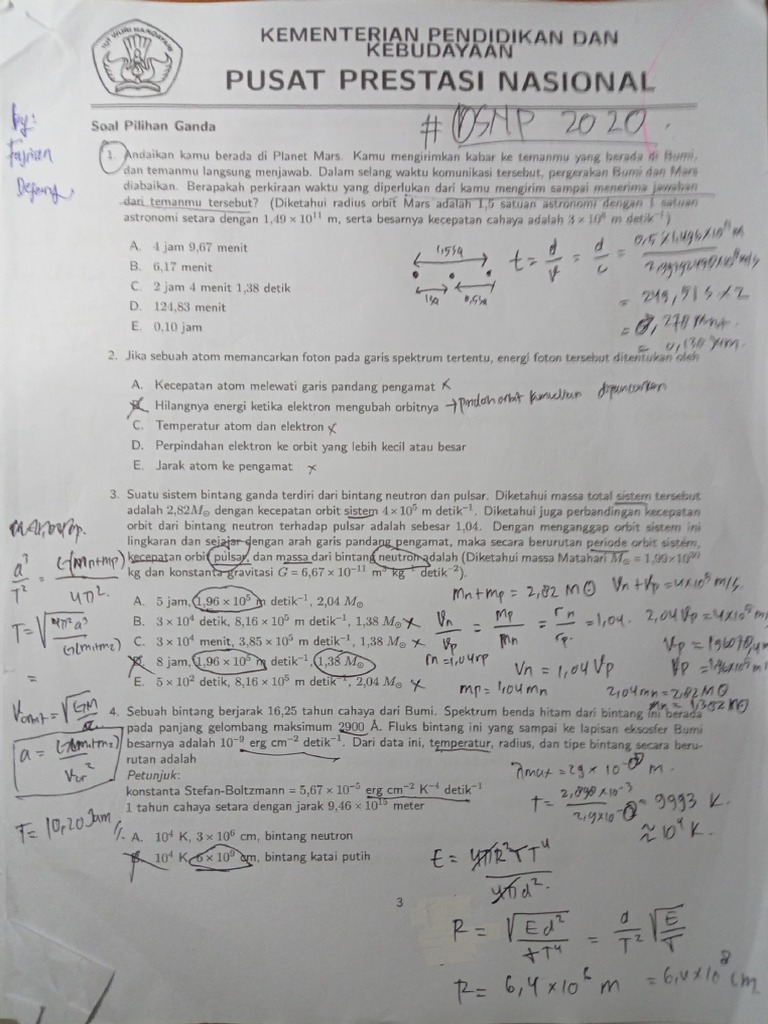 TUT WURI HANDAYANI
KEMENTERIAN PENDIDIKAN DAN
KEBUDAYAAN
PUSAT PRESTASI NASIONAL
by:
Soal Pilihan Ganda
# OSNP 2020.
1. Andaikan kamu berada di Planet Mars. Kamu mengirimkan kabar ke temanmu yang berada di Bumi,
dan temanmu langsung menjawab. Dalam selang waktu komunikasi tersebut, pergerakan Bumi dan Mars
diabaikan. Berapakah perkiraan waktu yang diperlukan dari kamu mengirim sampai menerima jawaban
dari temanmu tersebut? (Diketahui radius orbit Mars adalah 1,5 satuan astronomi dengan 1 satuan
astronomi setara dengan 1,49 × 10¹¹ m, serta besarnya kecepatan cahaya adalah 3 × 10⁸ m detik⁻¹)
A. 4 jam 9,67 menit
B. 6,17 menit
C. 2 jam 4 menit 1,38 detik
D. 124,83 menit
E. 0,10 jam
1,5 sa
1 sa 0,5 sa
t = d/v = d/c =
2. Jika sebuah atom memancarkan foton pada garis spektrum tertentu, energi foton tersebut ditentukan oleh
A. Kecepatan atom melewati garis pandang pengamat x
B. Hilangnya energi ketika elektron mengubah orbitnya → pindah orbit kemudian dipancarkan
C. Temperatur atom dan elektron x
D. Perpindahan elektron ke orbit yang lebih kecil atau besar
E. Jarak atom ke pengamat x
3. Suatu sistem bintang ganda terdiri dari bintang neutron dan pulsar. Diketahui massa total sistem tersebut
adalah 2,82M☉ dengan kecepatan orbit sistem 4 × 10⁵ m detik⁻¹. Diketahui juga perbandingan kecepatan
orbit dari bintang neutron terhadap pulsar adalah sebesar 1,04. Dengan menganggap orbit sistem ini
lingkaran dan sejajar dengan arah garis pandang pengamat, maka secara berurutan periode orbit sistem,
kecepatan orbit pulsar, dan massa dari bintang neutron adalah (Diketahui massa Matahari M☉ = 1,99×10³⁰
kg dan konstanta gravitasi G = 6,67 × 10⁻¹¹ m³ kg⁻¹ detik⁻²).
A. 5 jam, 1,96 × 10⁵ m detik⁻¹, 2,04 M☉
B. 3 × 10⁴ detik, 8,16 × 10⁵ m detik⁻¹, 1,38 M☉ x
C. 3 × 10⁴ menit, 3,85 × 10⁵ m detik⁻¹, 1,38 M☉ x
D. 8 jam, 1,96 × 10⁵ m detik⁻¹, 1,38 M☉
E. 5 × 10² detik, 8,16 × 10⁵ m detik⁻¹, 2,04 M☉ x
Mn + mp = 2,82 M☉ Vn + Vp = 4×10⁵ m/s.
Vn/Vp = mp/mn = rn/rp = 1,04. 2,04 Vp = 4×10⁵ m/
Vn = 1,04 Vp
mp = 1,04 mn 2,04 mn = 2,82 M☉
T = 10,20 Jam
4. Sebuah bintang berjarak 16,25 tahun cahaya dari Bumi. Spektrum benda hitam dari bintang ini berada
pada panjang gelombang maksimum 2900 Å. Fluks bintang ini yang sampai ke lapisan eksosfer Bumi
besarnya adalah 10⁻⁹ erg cm⁻² detik⁻¹. Dari data ini, temperatur, radius, dan tipe bintang secara beru-
rutan adalah
Petunjuk:
konstanta Stefan-Boltzmann = 5,67 × 10⁻⁵ erg cm⁻² K⁻⁴ detik⁻¹
1 tahun cahaya setara dengan jarak 9,46 × 10¹⁵ meter
A. 10⁴ K, 3 × 10⁶ cm, bintang neutron
B. 10⁴ K, 6 × 10⁹ cm, bintang katai putih
= 9993 K.
≈ 10⁴ K.
3
R = 6,4 × 10⁶ m = 6,4 × 10⁸ cm